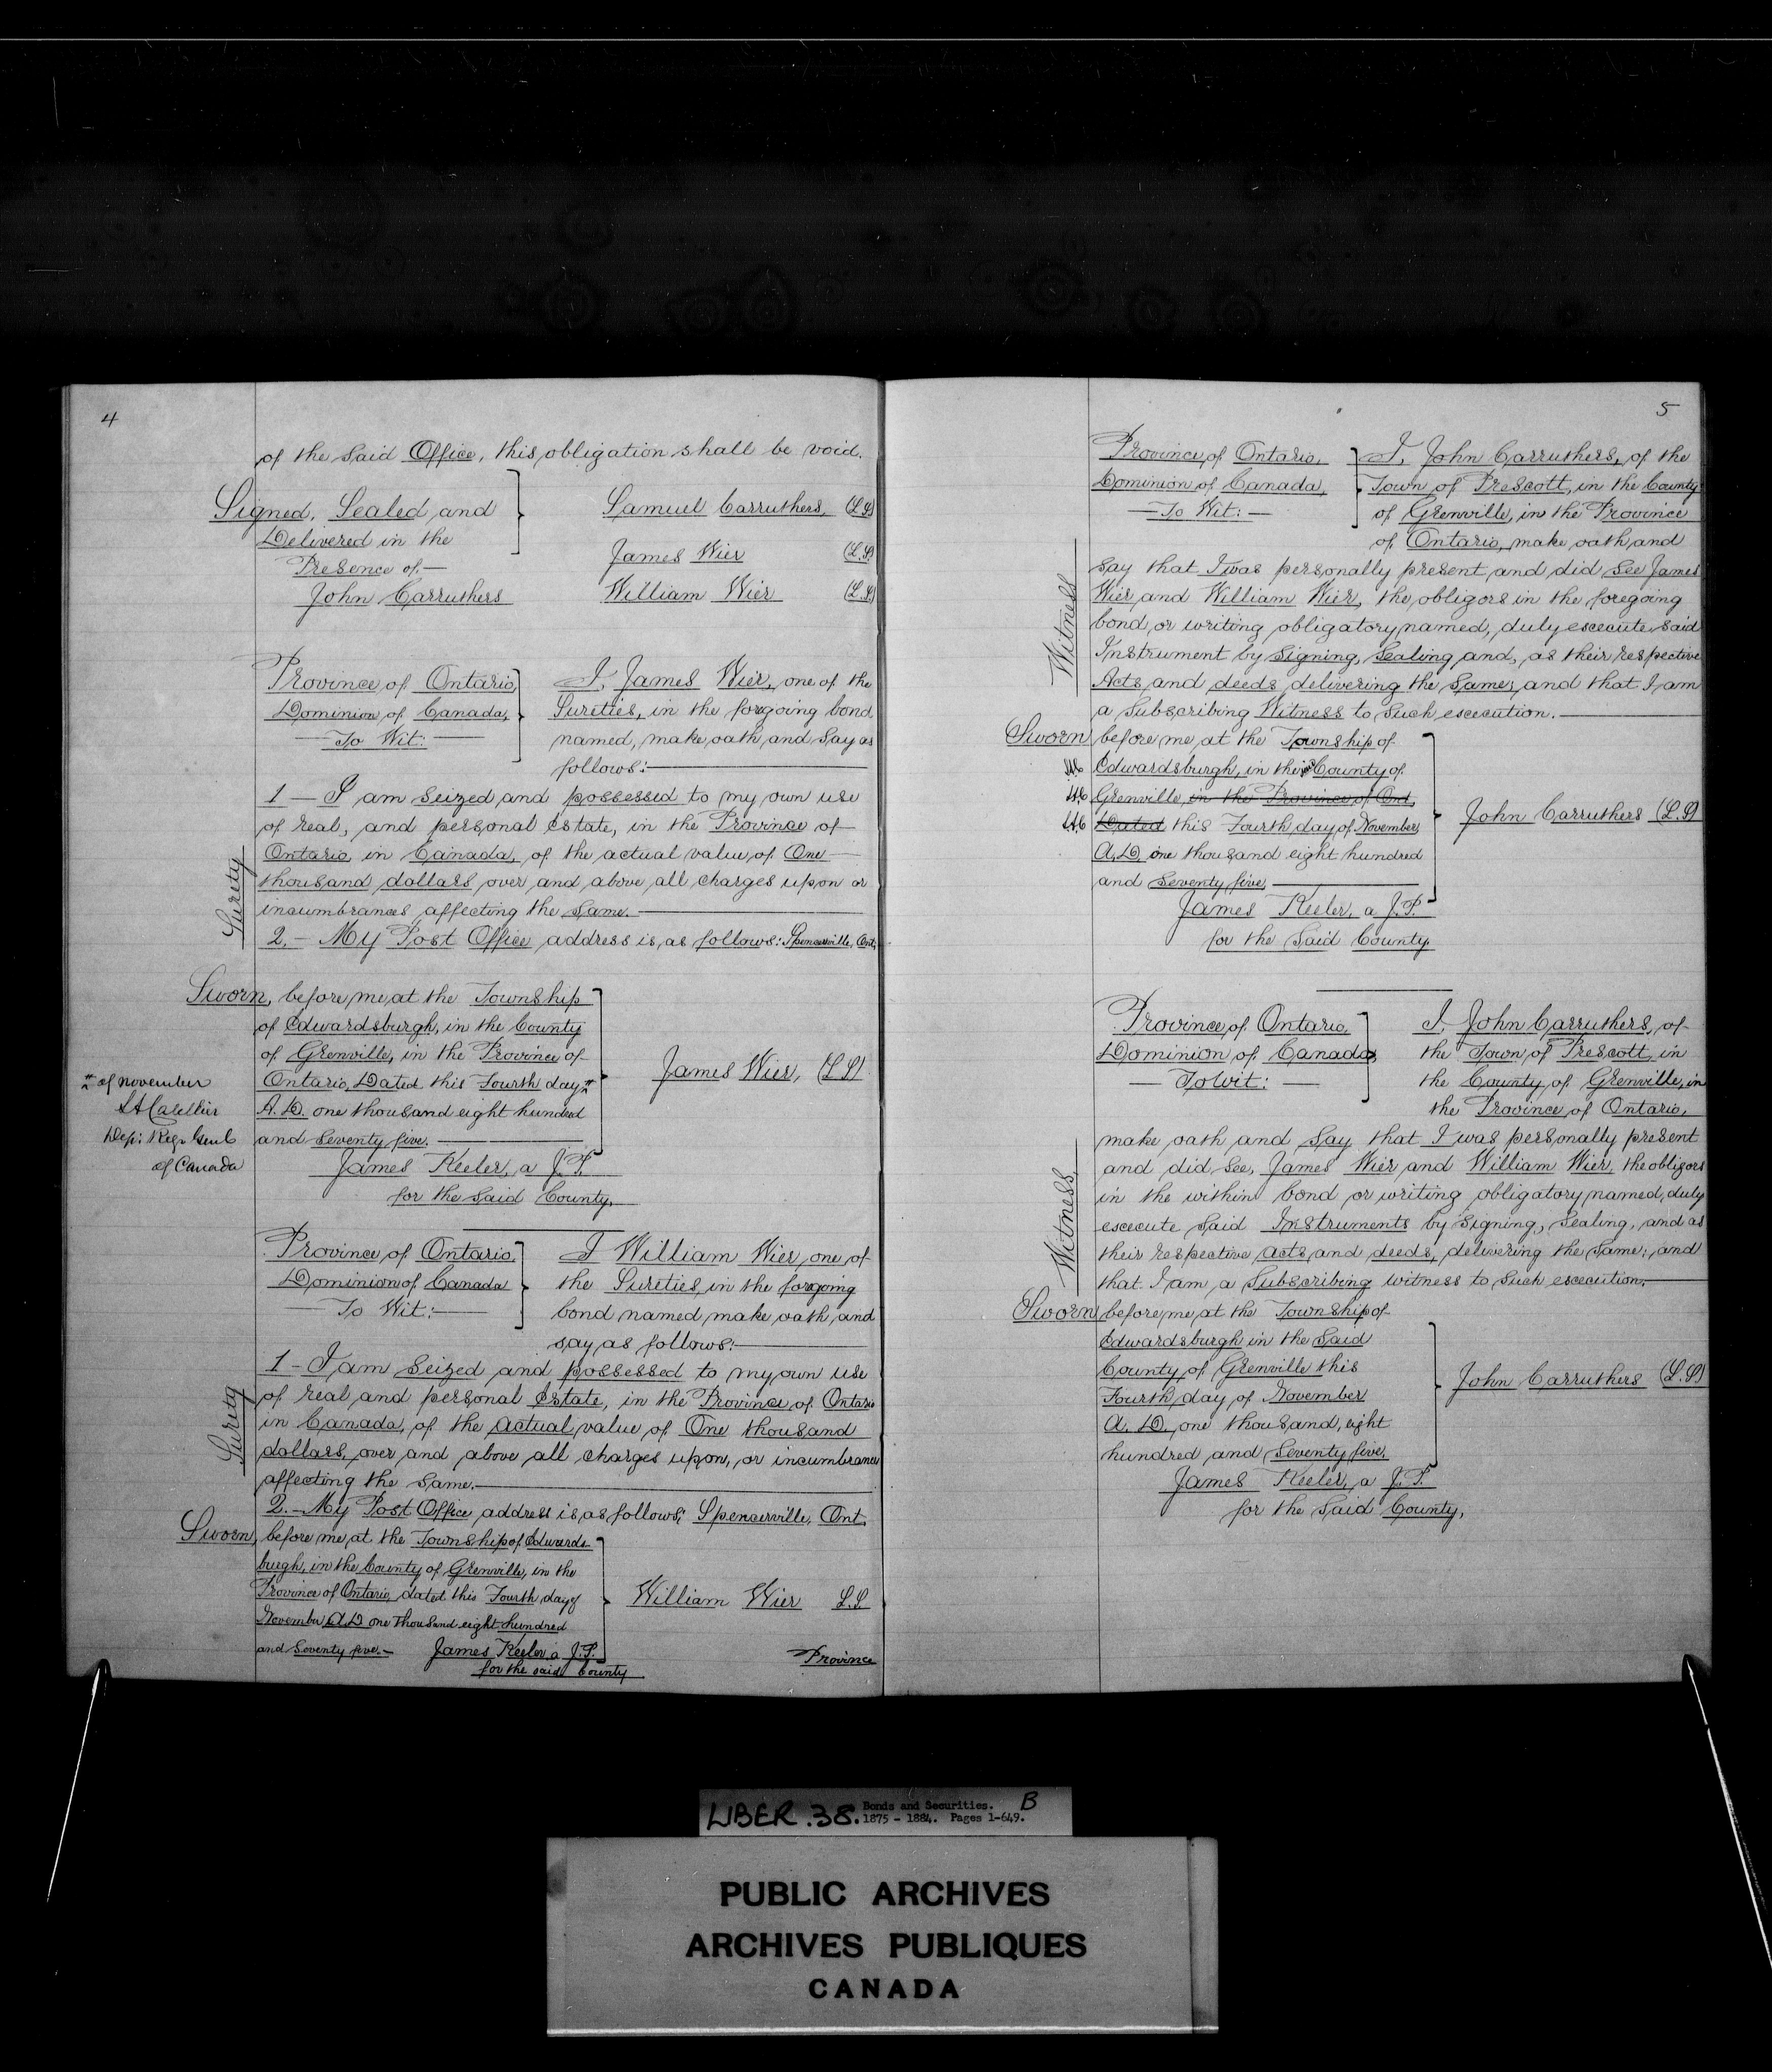 4
of the Said Office, this obligation shall be void.
Signed, Sealed and
Delivered in the
Presence of.—
John Carruthers
Samuel Carruthers, (L.S)
James Wier (L.S)
William Wier (L.S)
Province of Ontario,
Dominion of Canada,
— To Wit: —
I, James Wier, one of the
Sureties, in the foregoing bond
named, make oath and Say as
follows:—
Surety
1 — I am Seized and possessed to my own use
of real, and personal Estate, in the Province of
Ontario in Canada, of the actual value of One—
thousand dollars over and above all charges upon or
incumbrances affecting the Same.—
2.— My Post Office address is as follows: Spencerville, Ont.
Sworn, before me at the Township
of Edwardsburgh, in the County
of Grenville, in the Province of
Ontario, Dated this Fourth day #
A.D. one thousand eight hundred
and Seventy five.—
James Keeler, a J.P.
for the Said County.
James Wier, (L.S)
# of november
Dep: Regr Genl
of Canada
Province of Ontario,
Dominion of Canada
— To Wit:—
I William Wier, one of
the Sureties in the forgoing
bond named make oath, and
say as follows:—
Surety
1 — I am Seized and possessed to my own use
of real and personal Estate, in the Province of Ontario
in Canada, of the actual value of One thousand
dollars, over and above all charges upon, or incumbrance
affecting the Same.—
2.— My Post Office address is as follows; Spencerville, Ont.
Sworn, before me at the Township of Edwards-
burgh, in the County of Grenville, in the
Province of Ontario, dated this Fourth day of
November A.D one thousand eight hundred
and Seventy five.— James Keeler, a J.P.
for the said County
William Wier L.S.
Province
5
Province of Ontario,
Dominion of Canada,
— To Wit: —
I, John Carruthers, of the
Town of Prescott, in the County
of Grenville, in the Province
of Ontario, make oath, and
Witness
say that I was personally present and did See James
Wier and William Wier, the obligors in the foregoing
bond, or writing obligatory named, duly execute said
Instrument by Signing, Sealing and, as their respective
Acts, and deeds delivering the Same, and that I am
a Subscribing Witness to Such execution.—
Sworn before me at the Township of
Edwardsburgh, in the said County of
Grenville in the Province of Ont,
Dated this Fourth day of November
A.D. one thousand eight hundred
and Seventy five,—
James Keeler, a J.P.
for the Said County.
John Carruthers (L.S)
Province of Ontario,
Dominion of Canada,
— To Wit: —
I, John Carruthers, of
the Town of Prescott, in
the County of Grenville, in
the Province of Ontario,
Witness
make oath and Say that I was personally present
and did See, James Wier and William Wier, the obligors
in the within bond or writing obligatory named, duly
execute Said Instruments by Signing, Sealing, and as
their respective acts, and deeds, delivering the Same; and
that I am a Subscribing witness to Such execution.—
Sworn before me at the Township of
Edwardsburgh in the Said
County of Grenville this
Fourth day of November
A. D. one thousand, eight
hundred and Seventy five.
James Keeler, a J.P.
for the Said County.
John Carruthers (L.S)
LIBER .38. Bonds and Securities. B
1875 - 1884. Pages 1-649.
PUBLIC ARCHIVES
ARCHIVES PUBLIQUES
CANADA